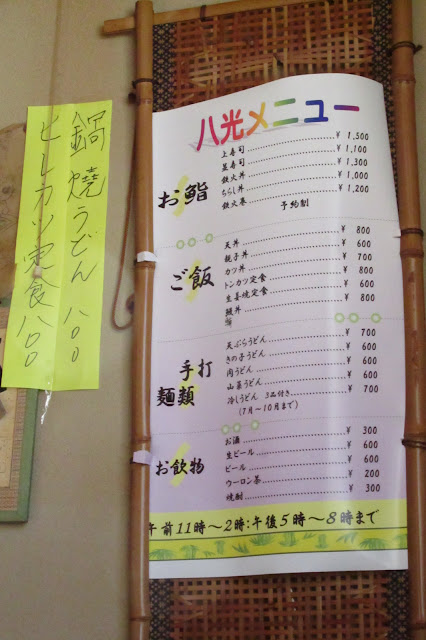 鍋焼うどん 八〇〇
ヒレカツ定食 八〇〇
八光メニュー
お鮨
上寿司 ¥ 1,500
並寿司 ¥ 1,100
鉄火丼 ¥ 1,300
ちらし丼 ¥ 1,000
鉄火巻 ¥ 1,200
予約制
ご飯
天丼 ¥ 800
親子丼 ¥ 600
カツ丼 ¥ 700
トンカツ定食 ¥ 800
生姜焼定食 ¥ 600
鰻丼 ¥ 800
手打
麺類
天ぷらうどん ¥ 700
きの子うどん ¥ 600
肉うどん ¥ 600
山菜うどん ¥ 600
冷しうどん 3品付き ¥ 700
(7月~10月まで)
お飲物
お酒 ¥ 300
生ビール ¥ 600
ビール ¥ 600
ウーロン茶 ¥ 200
焼酎 ¥ 300
午前11時~2時:午後5時~8時まで